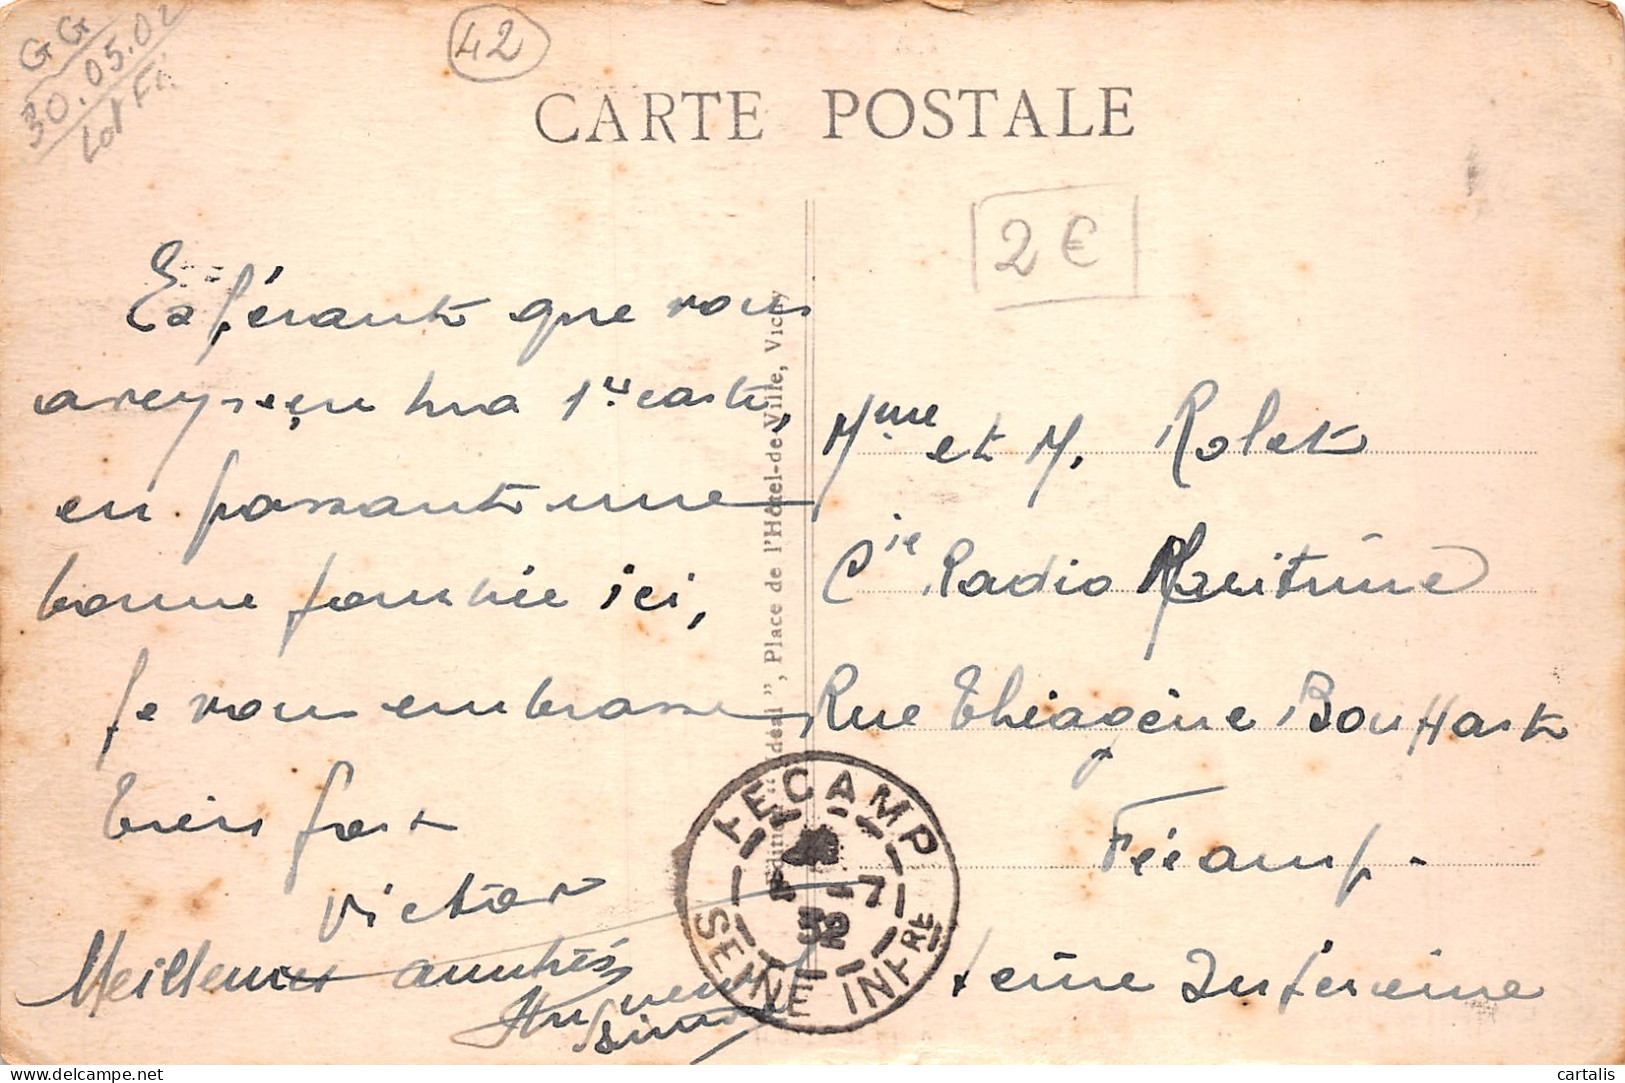 GG
30.05.02
Lot Fi.
42
CARTE POSTALE
2€
Espérant que vous
avez reçu ma 1re carte,
en passant une
bonne journée ici,
Je vous embrasse
bien fort
Victor
Meilleures amitiés
", Place de l'Hôtel-de-Ville, Vichy
Mme et M. Rolet
Cie Radio Maritime
Rue Théagène Bouffart
Fécamp.
Seine Inférieure
FECAMP
-7
32
SEINE INFRE
delcampe.net
cartalis